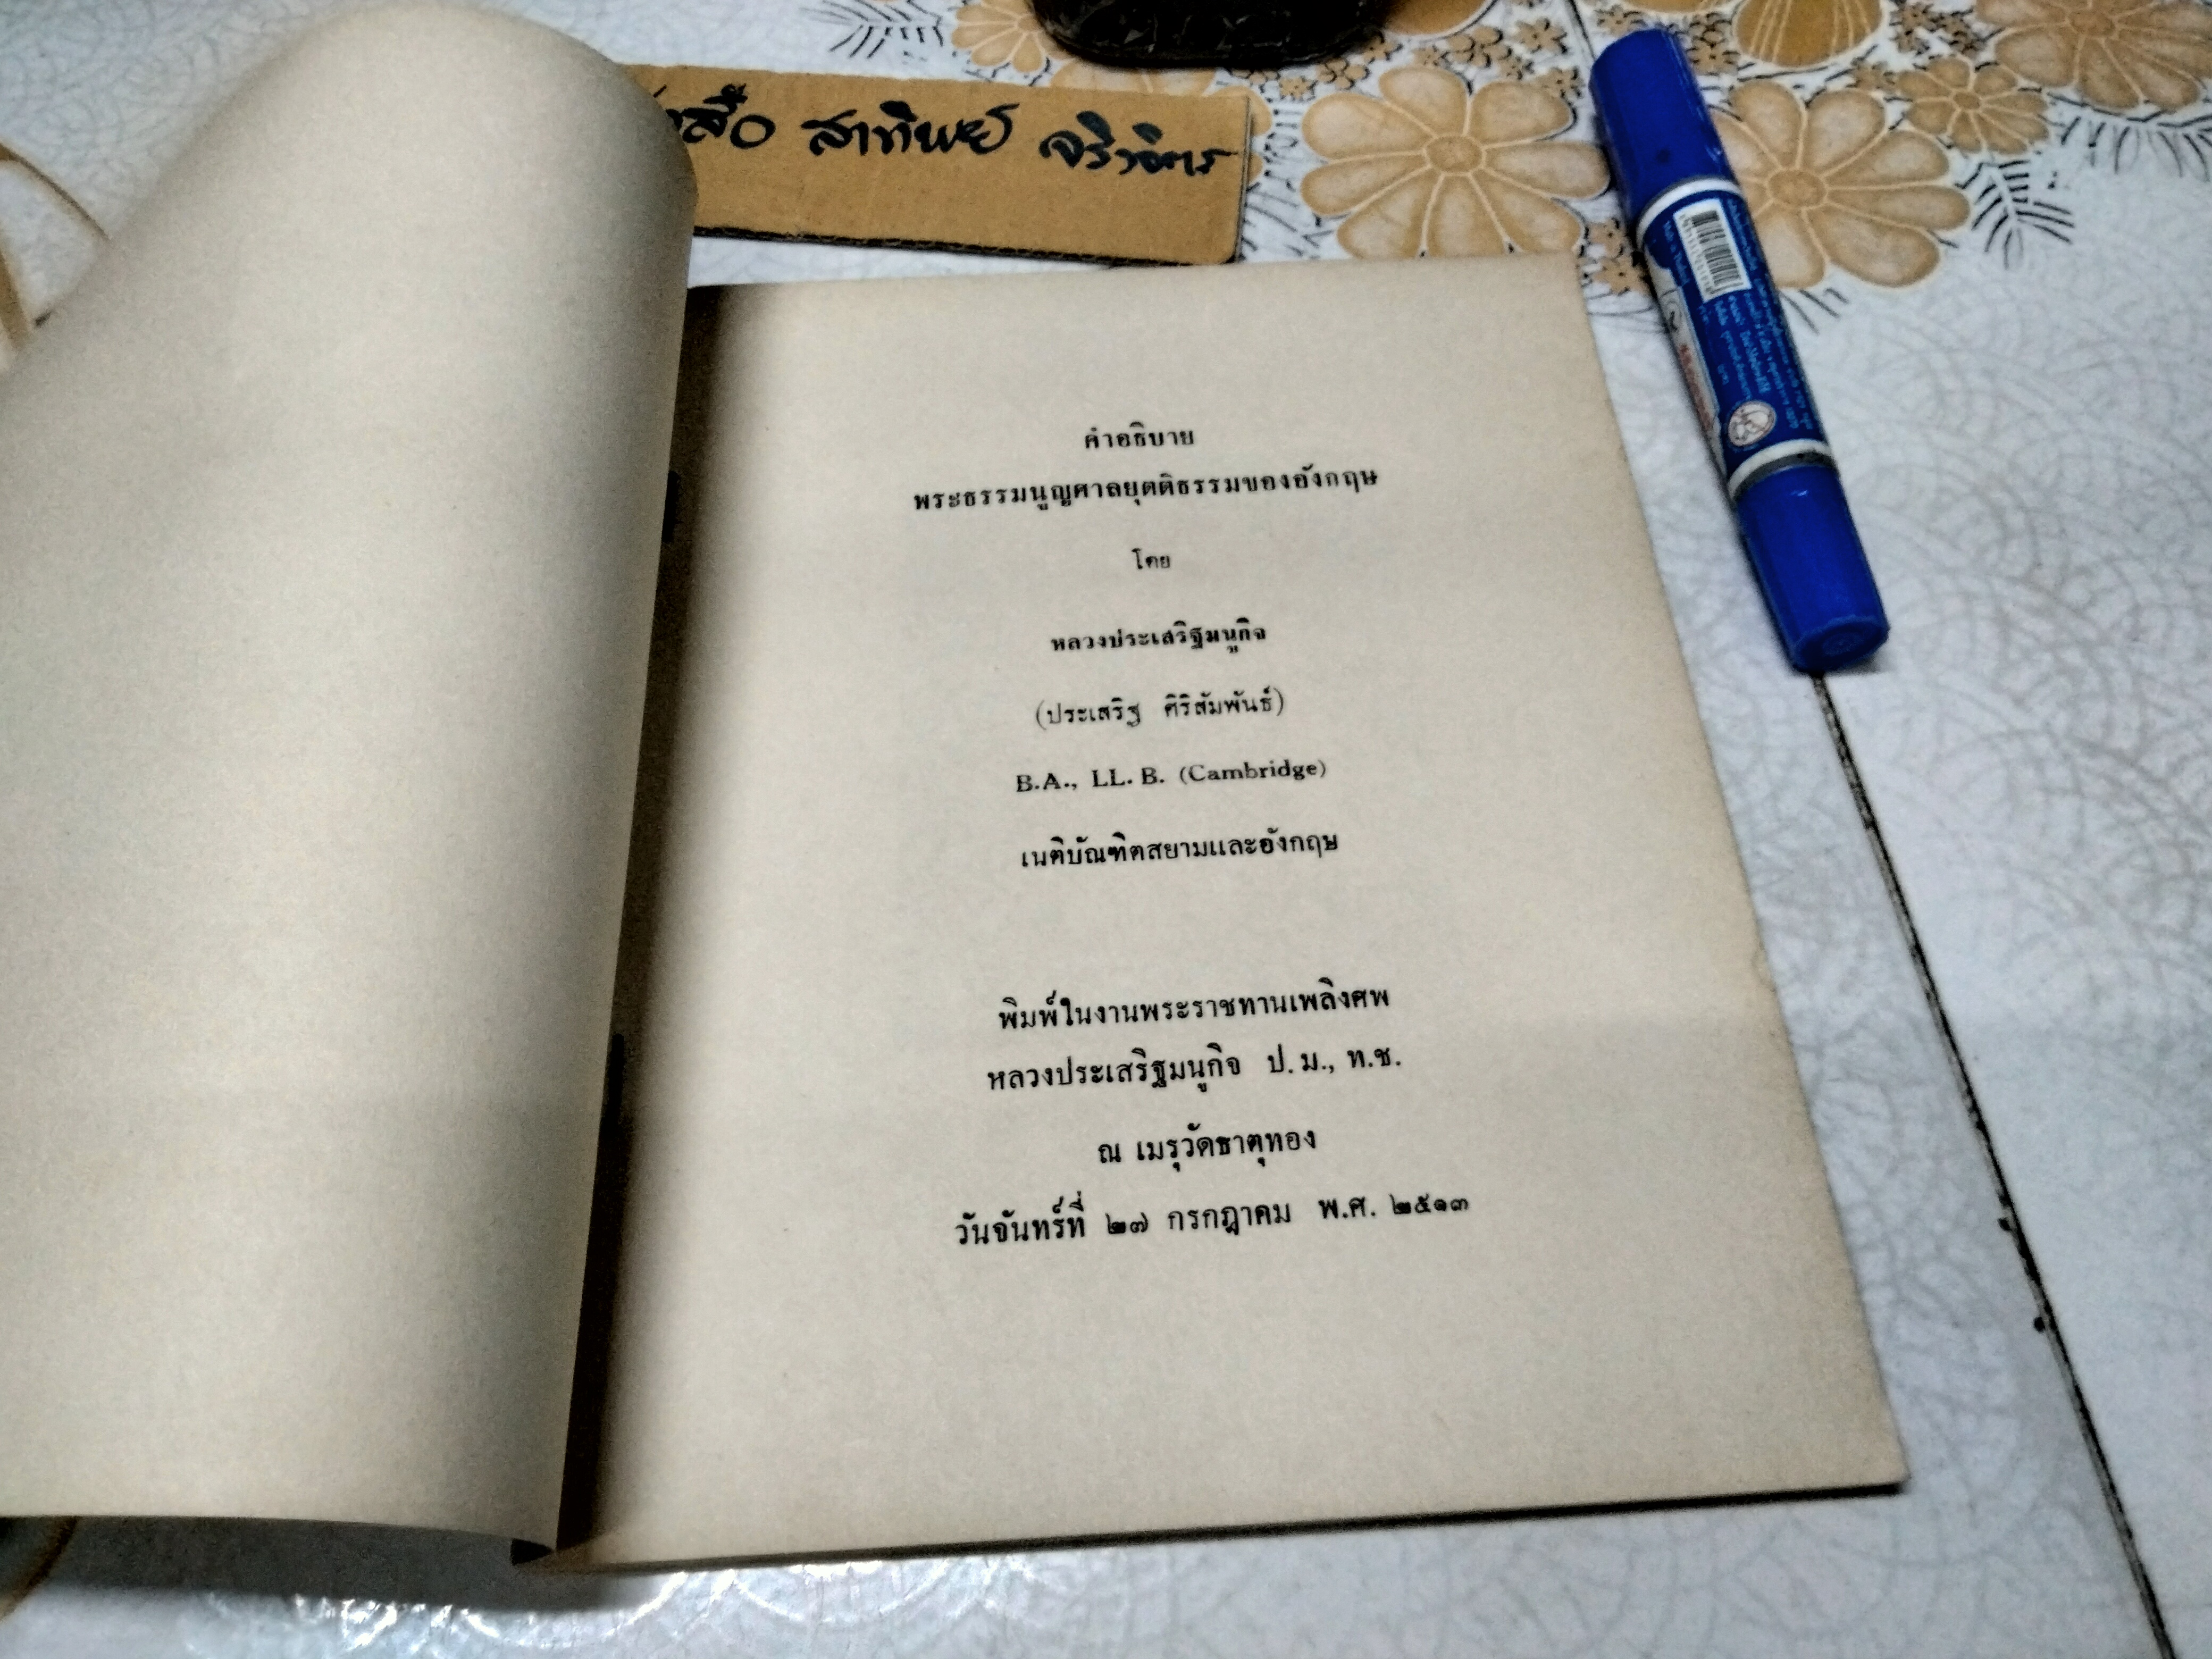 สาทิพย์ จริงจิตร
คำอธิบาย
พระธรรมนูญศาลยุตติธรรมของอังกฤษ
โดย
หลวงประเสริฐมนูกิจ
(ประเสริฐ ศิริสัมพันธ์)
B.A., LL. B. (Cambridge)
เนติบัณฑิตสยามและอังกฤษ
พิมพ์ในงานพระราชทานเพลิงศพ
หลวงประเสริฐมนูกิจ ป. ม., ท.ช.
ณ เมรุวัดธาตุทอง
วันจันทร์ที่ ๒๗ กรกฎาคม พ.ศ. ๒๕๑๓